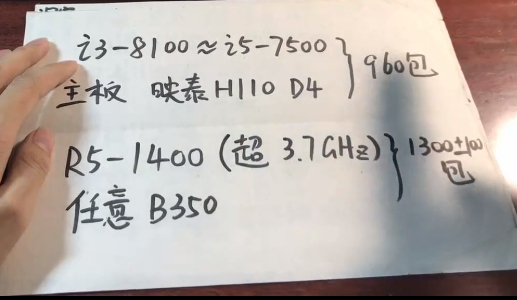 i3-8100≈i5-7500
主板 映泰H110 D4
960包
R5-1400 (超 3.7GHz)
任意 B350
1300±100
包